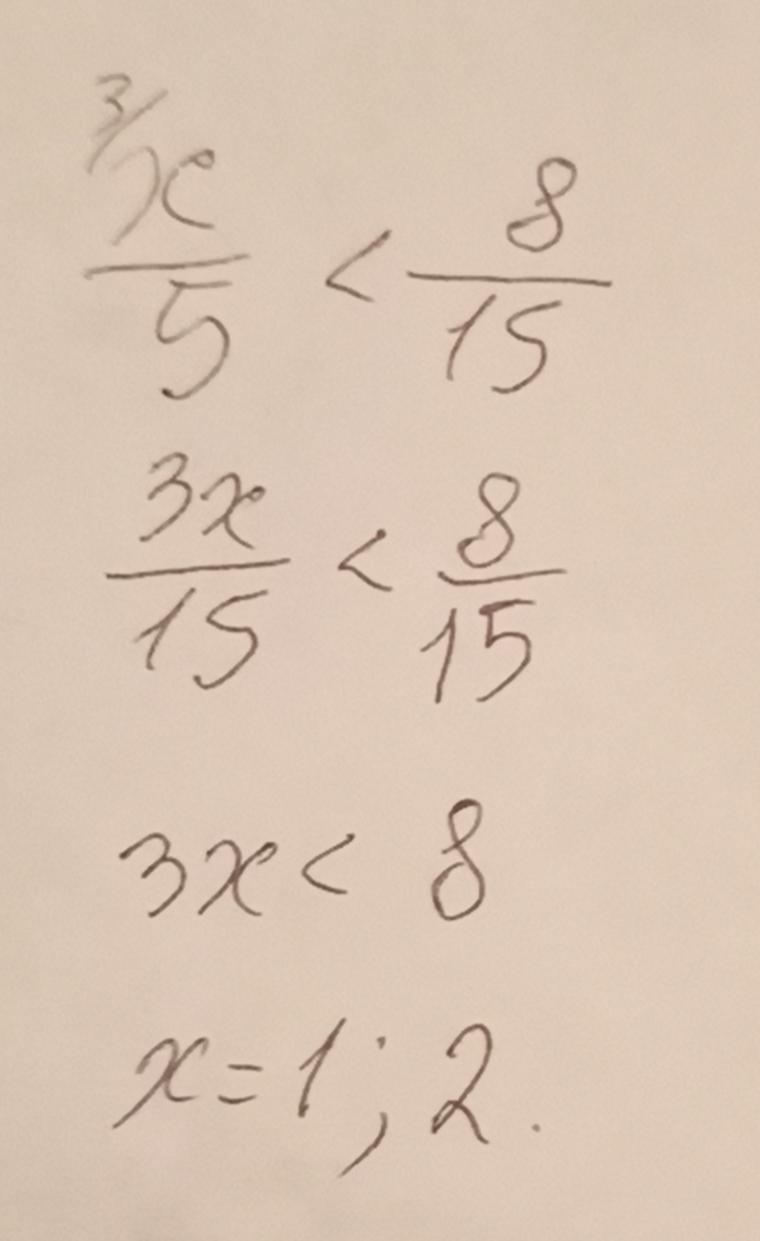 3/
x/5 < 8/15
3x/15 < 8/15
3x < 8
x = 1; 2.